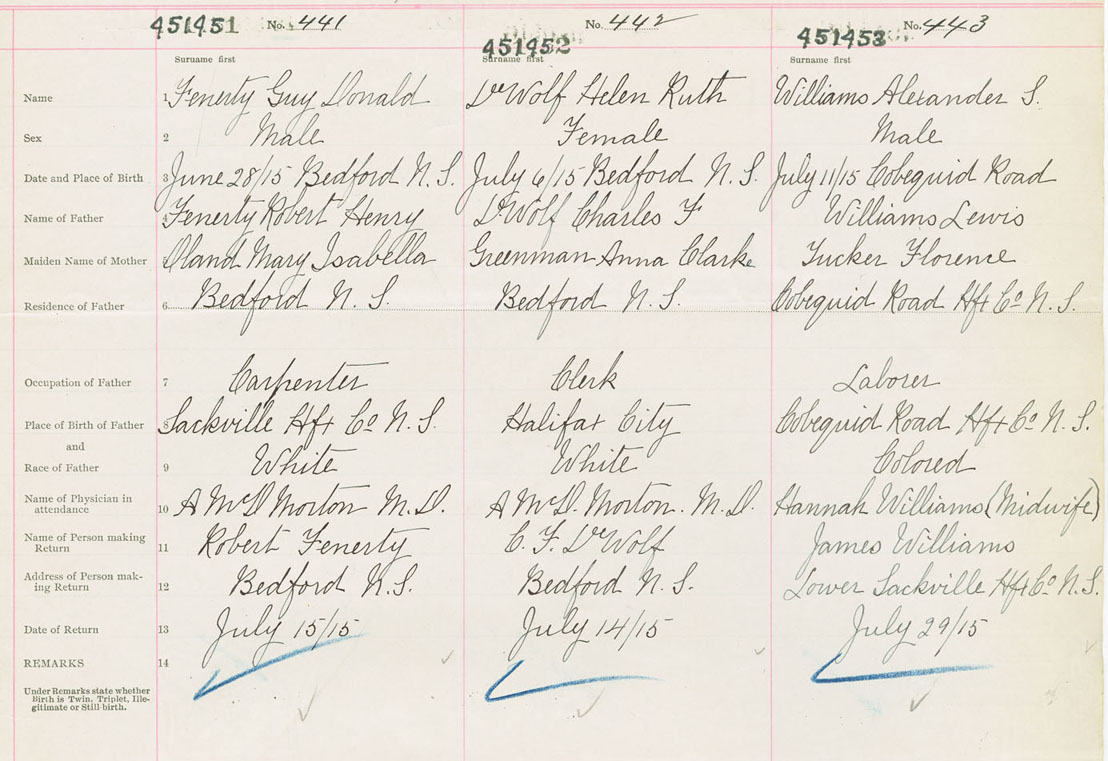 451451 No. 441 No. 442 No. 443
451452 451453
Surname first Surname first Surname first
Name 1 Fenerty Guy Donald DeWolf Helen Ruth Williams Alexander S.
Sex 2 Male Female Male
Date and Place of Birth 3 June 28/15 Bedford N. S. July 6/15 Bedford N. S. July 11/15 Cobequid Road
Name of Father 4 Fenerty Robert Henry DeWolf Charles F Williams Lewis
Maiden Name of Mother Oland Mary Isabella Greenman Anna Clarke Tucker Florence
Residence of Father 6 Bedford N. S. Bedford N. S. Cobequid Road Hfx Co N. S.
Occupation of Father 7 Carpenter Clerk Laborer
Place of Birth of Father 8 Sackville Hfx Co N. S. Halifax City Cobequid Road Hfx Co N. S.
and
Race of Father 9 White White Colored
Name of Physician in
attendance 10 A McD Morton M. D. A McD. Morton. M. D. Hannah Williams (Midwife)
Name of Person making
Return 11 Robert Fenerty C. F. DeWolf James Williams
Address of Person mak-
ing Return 12 Bedford N. S. Bedford N. S. Lower Sackville Hfx Co N. S.
Date of Return 13 July 15/15 July 14/15 July 29/15
REMARKS 14
Under Remarks state whether
Birth is Twin, Triplet, Ille-
gitimate or Still-birth.